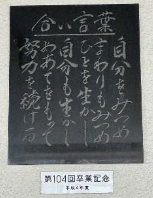 合い言葉
自分をみつめ
まわりもみつめ
ひとを生かし
自分も生かし
めあてをもって
努力を続ける
第104回卒業記念
平成4年度